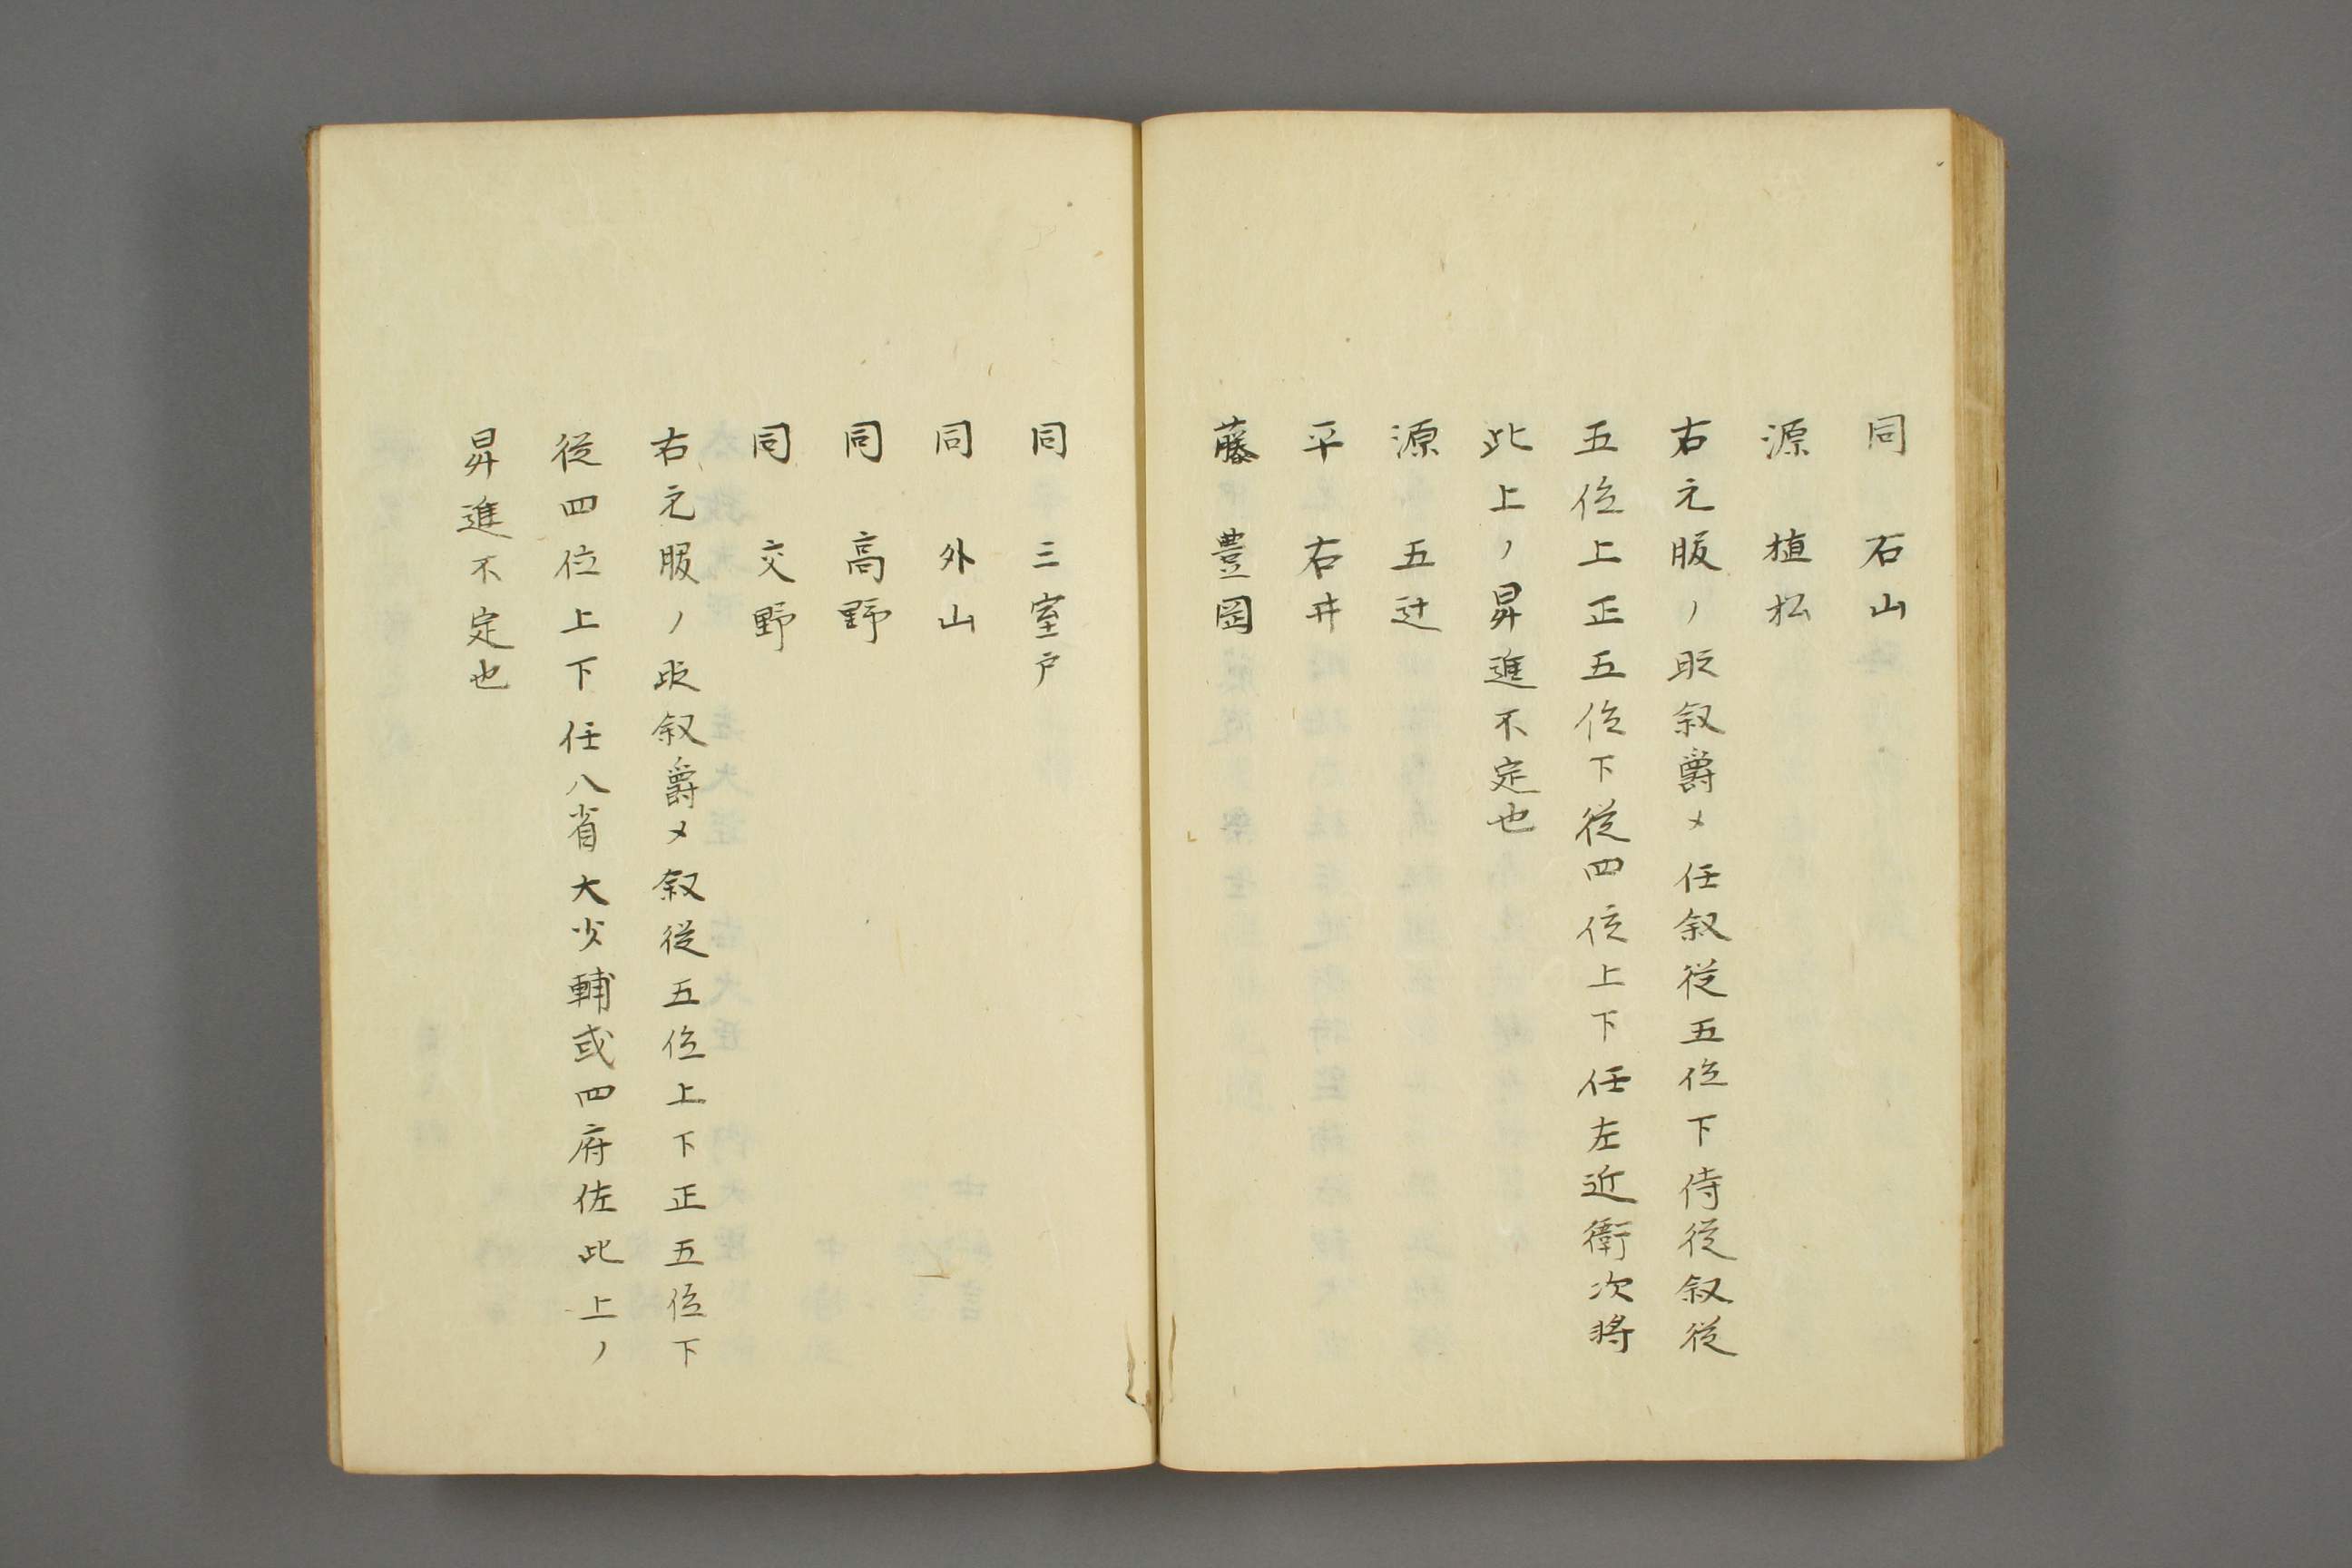 同　石山
源　植松
右元服ノ時叙爵〆任叙従五位下侍従叙従
五位上正五位下従四位上下任左近衛次将
此上ノ昇進不定也
源　五辻
平　石井
藤　豊岡
同　三室戸
同　外山
同　高野
同　交野
右元服ノ時叙爵〆叙従五位上下正五位下
従四位上下任八省大少輔或四府佐此上ノ
昇進不定也